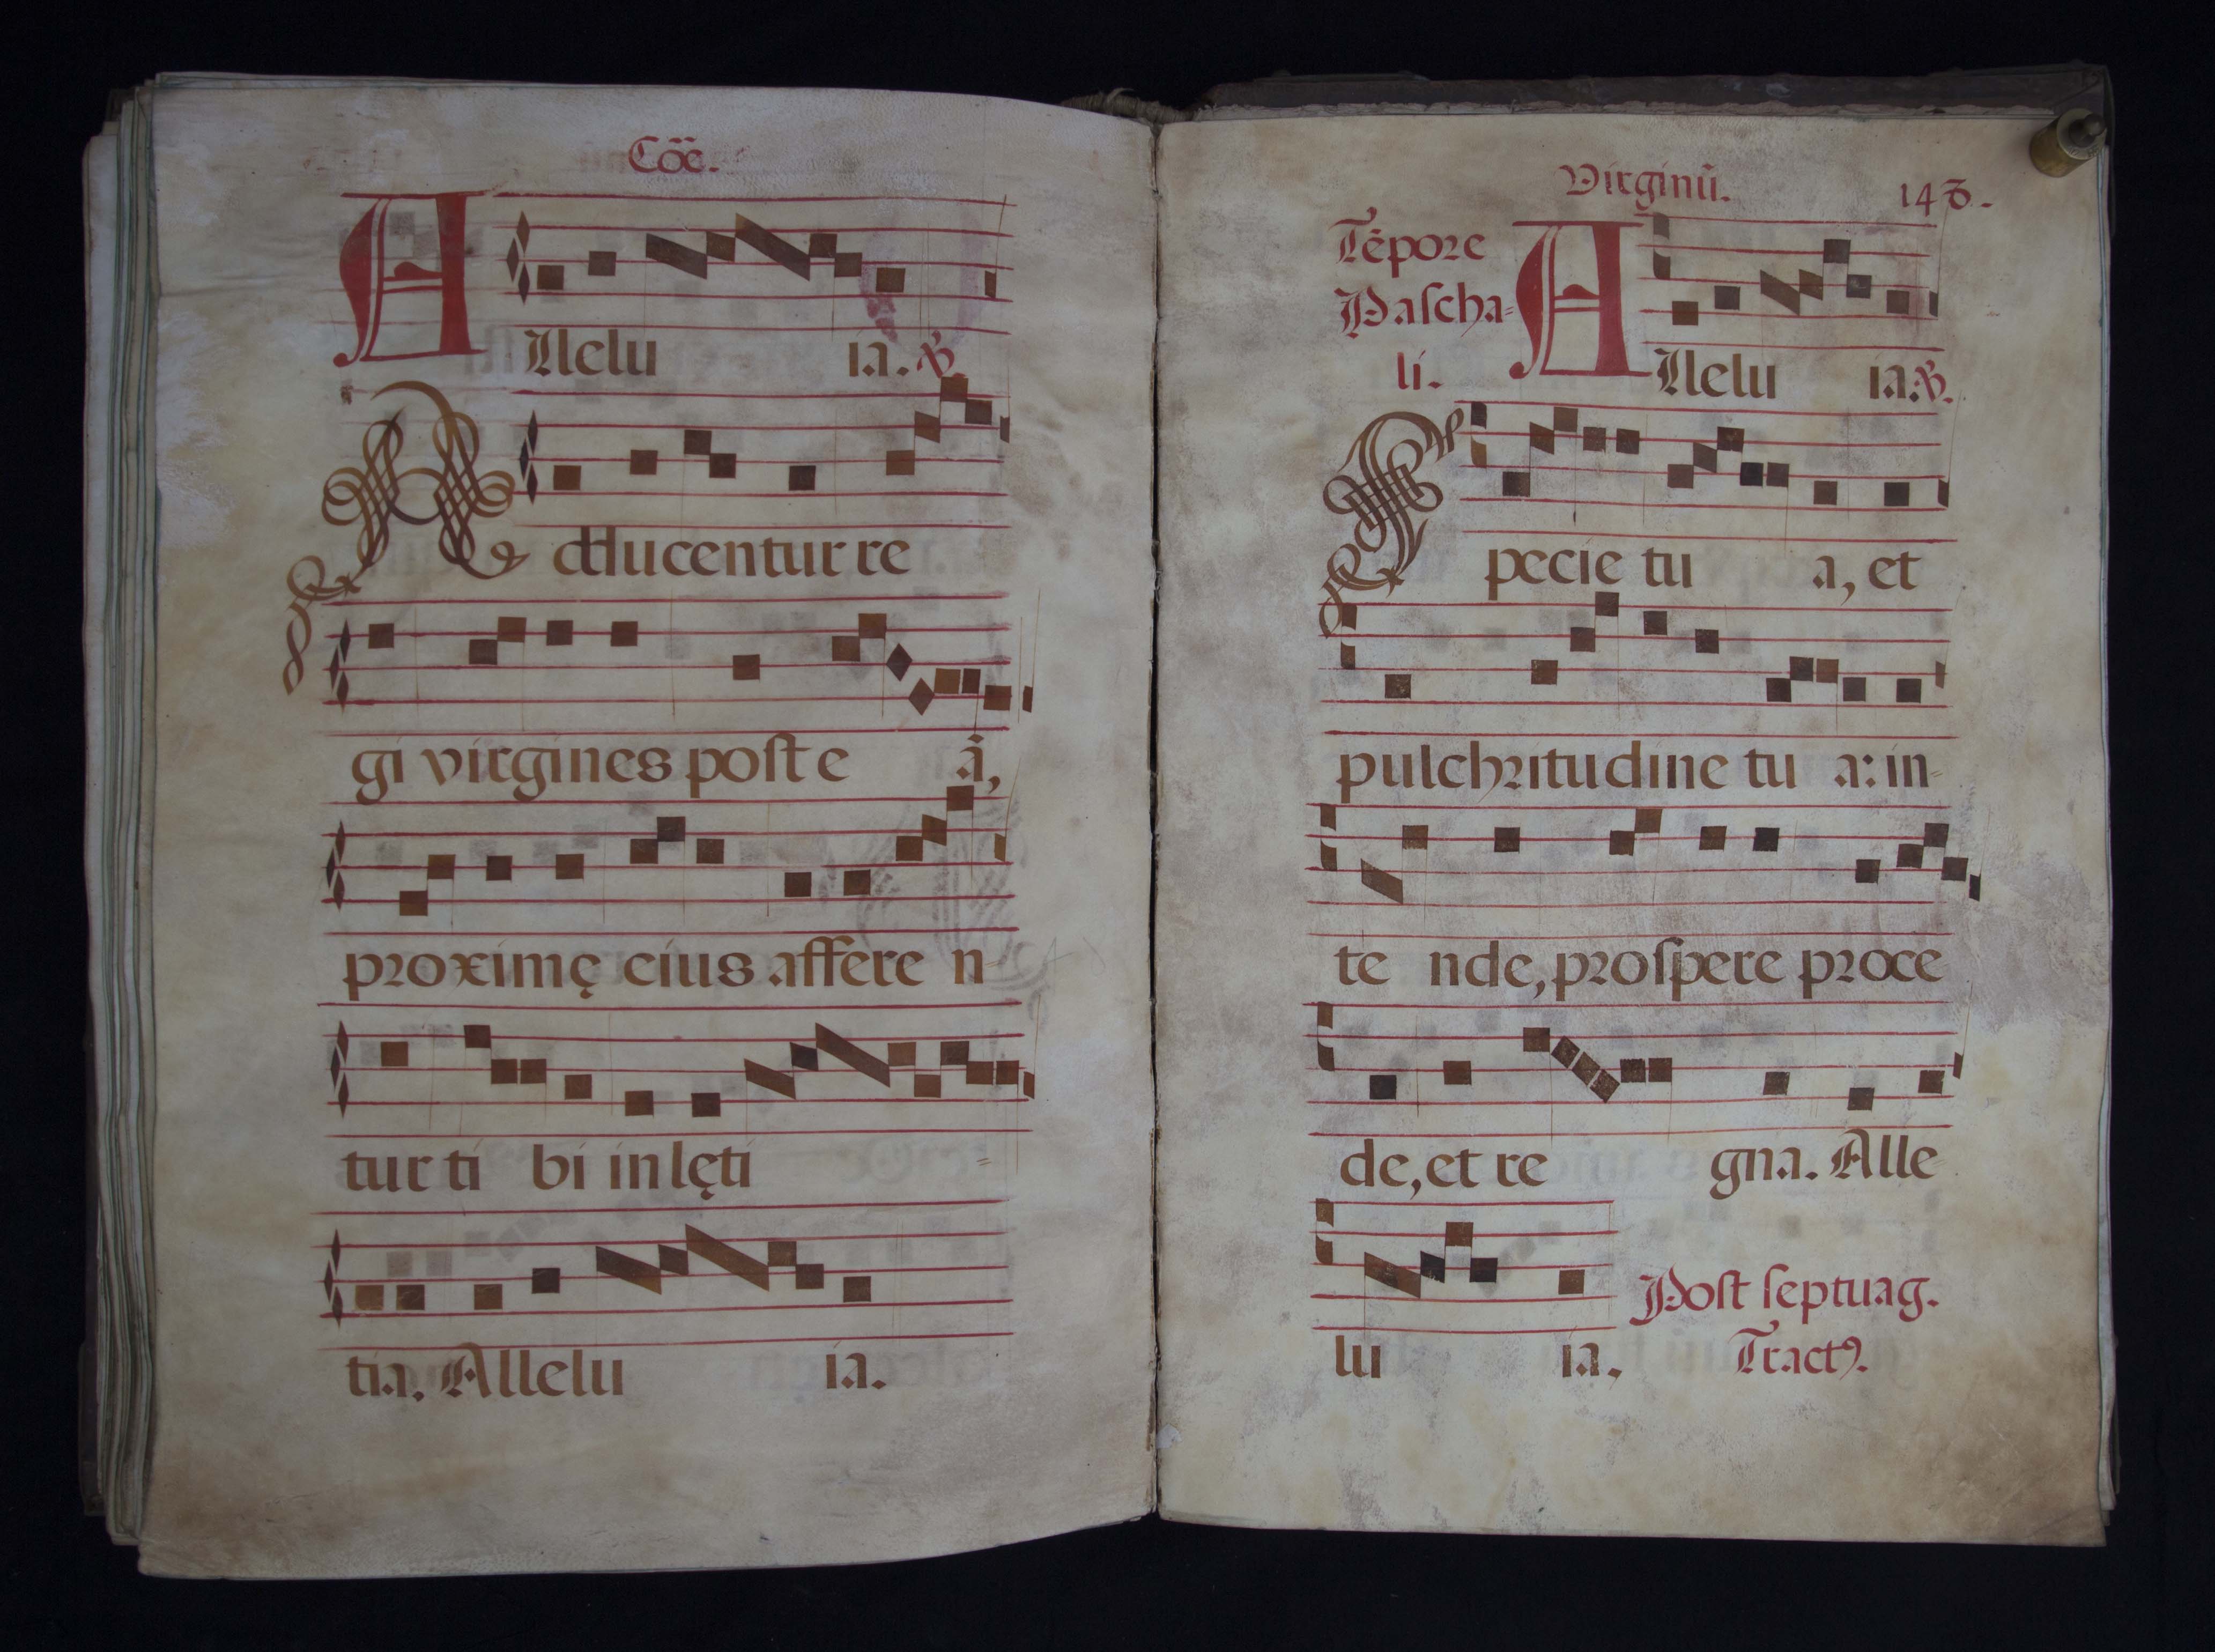 Cõẽ.
Allelu ia. ℣.
Adducentur re
gi virgines poſt e ã,
proximę eius affere n-
tur ti bi in lęti =
tia. Allelu ia.
Virginũ. 148.
Tẽpore
Paſcha=
li.
Allelu ia: ℣.
Specie tu a, et
pulchritudine tu a: in-
te nde, proſpere proce
de, et re gna. Alle
lu ia.
Poſt ſeptuag.
Tractꝰ.